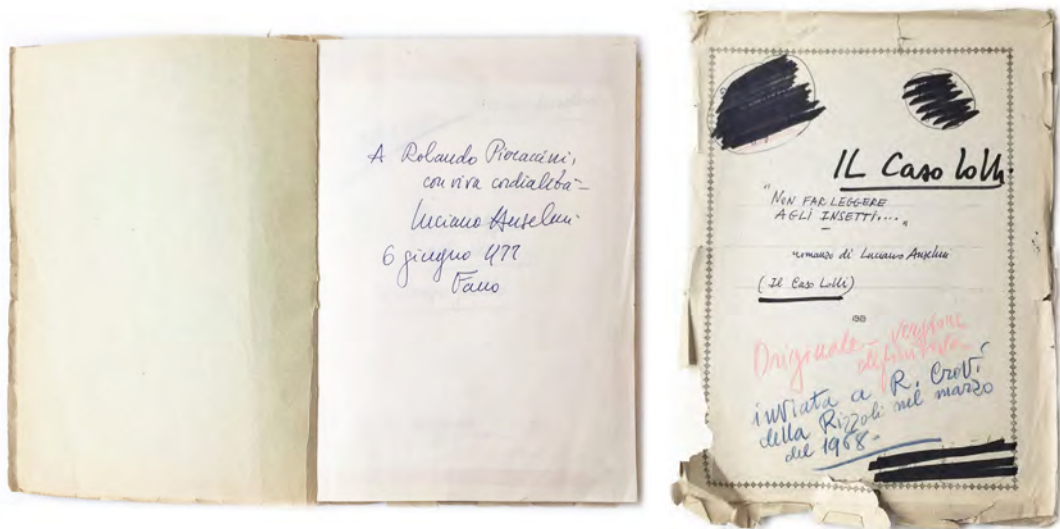 A Rolando Piccaccini,
con viva cordialità –
Luciano Anselmi
6 giugno 977
Fano
IL Caso Lolli.
"NON FAR LEGGERE
AGLI INSETTI...."
romanzo di Luciano Anselmi
(Il Caso Lolli)
Originale – versione
definitiva –
inviata a R. Crovi
della Rizzoli nel marzo
del 1968 –